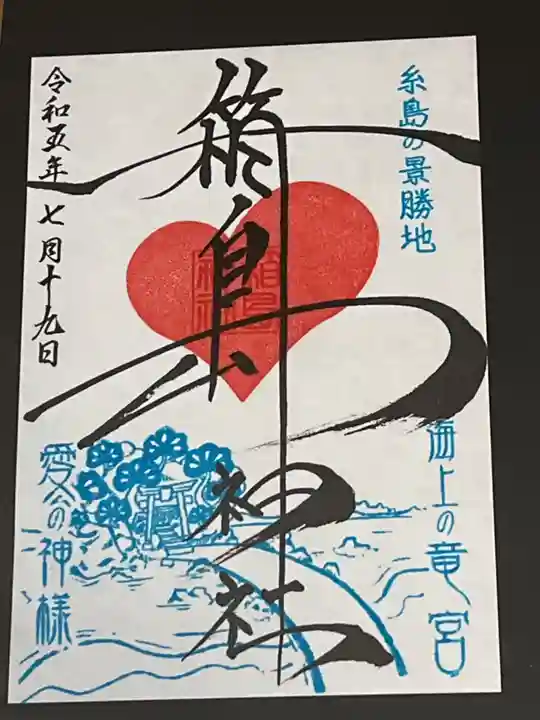 糸島の景勝地
海上の竜宮
箱島神社
令和五年 七月十九日
愛の神様
箱島
神社